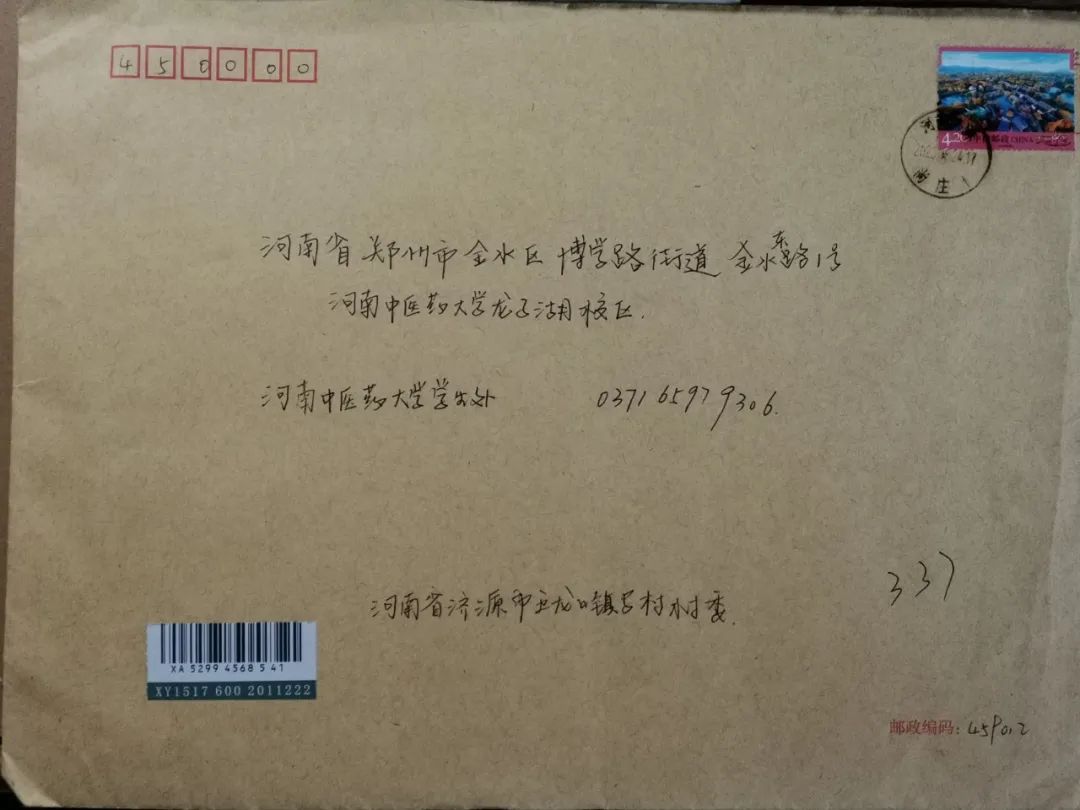 450000
4.20 中国邮政 CHINA
河南省郑州市金水区博学路街道金水东路1号
河南中医药大学龙子湖校区.
河南中医药大学学生处 0371 65979306.
337
河南省济源市五龙口镇 村村委.
XA 5299 4568 5 41
XY1517 600 2011222
邮政编码: 459012